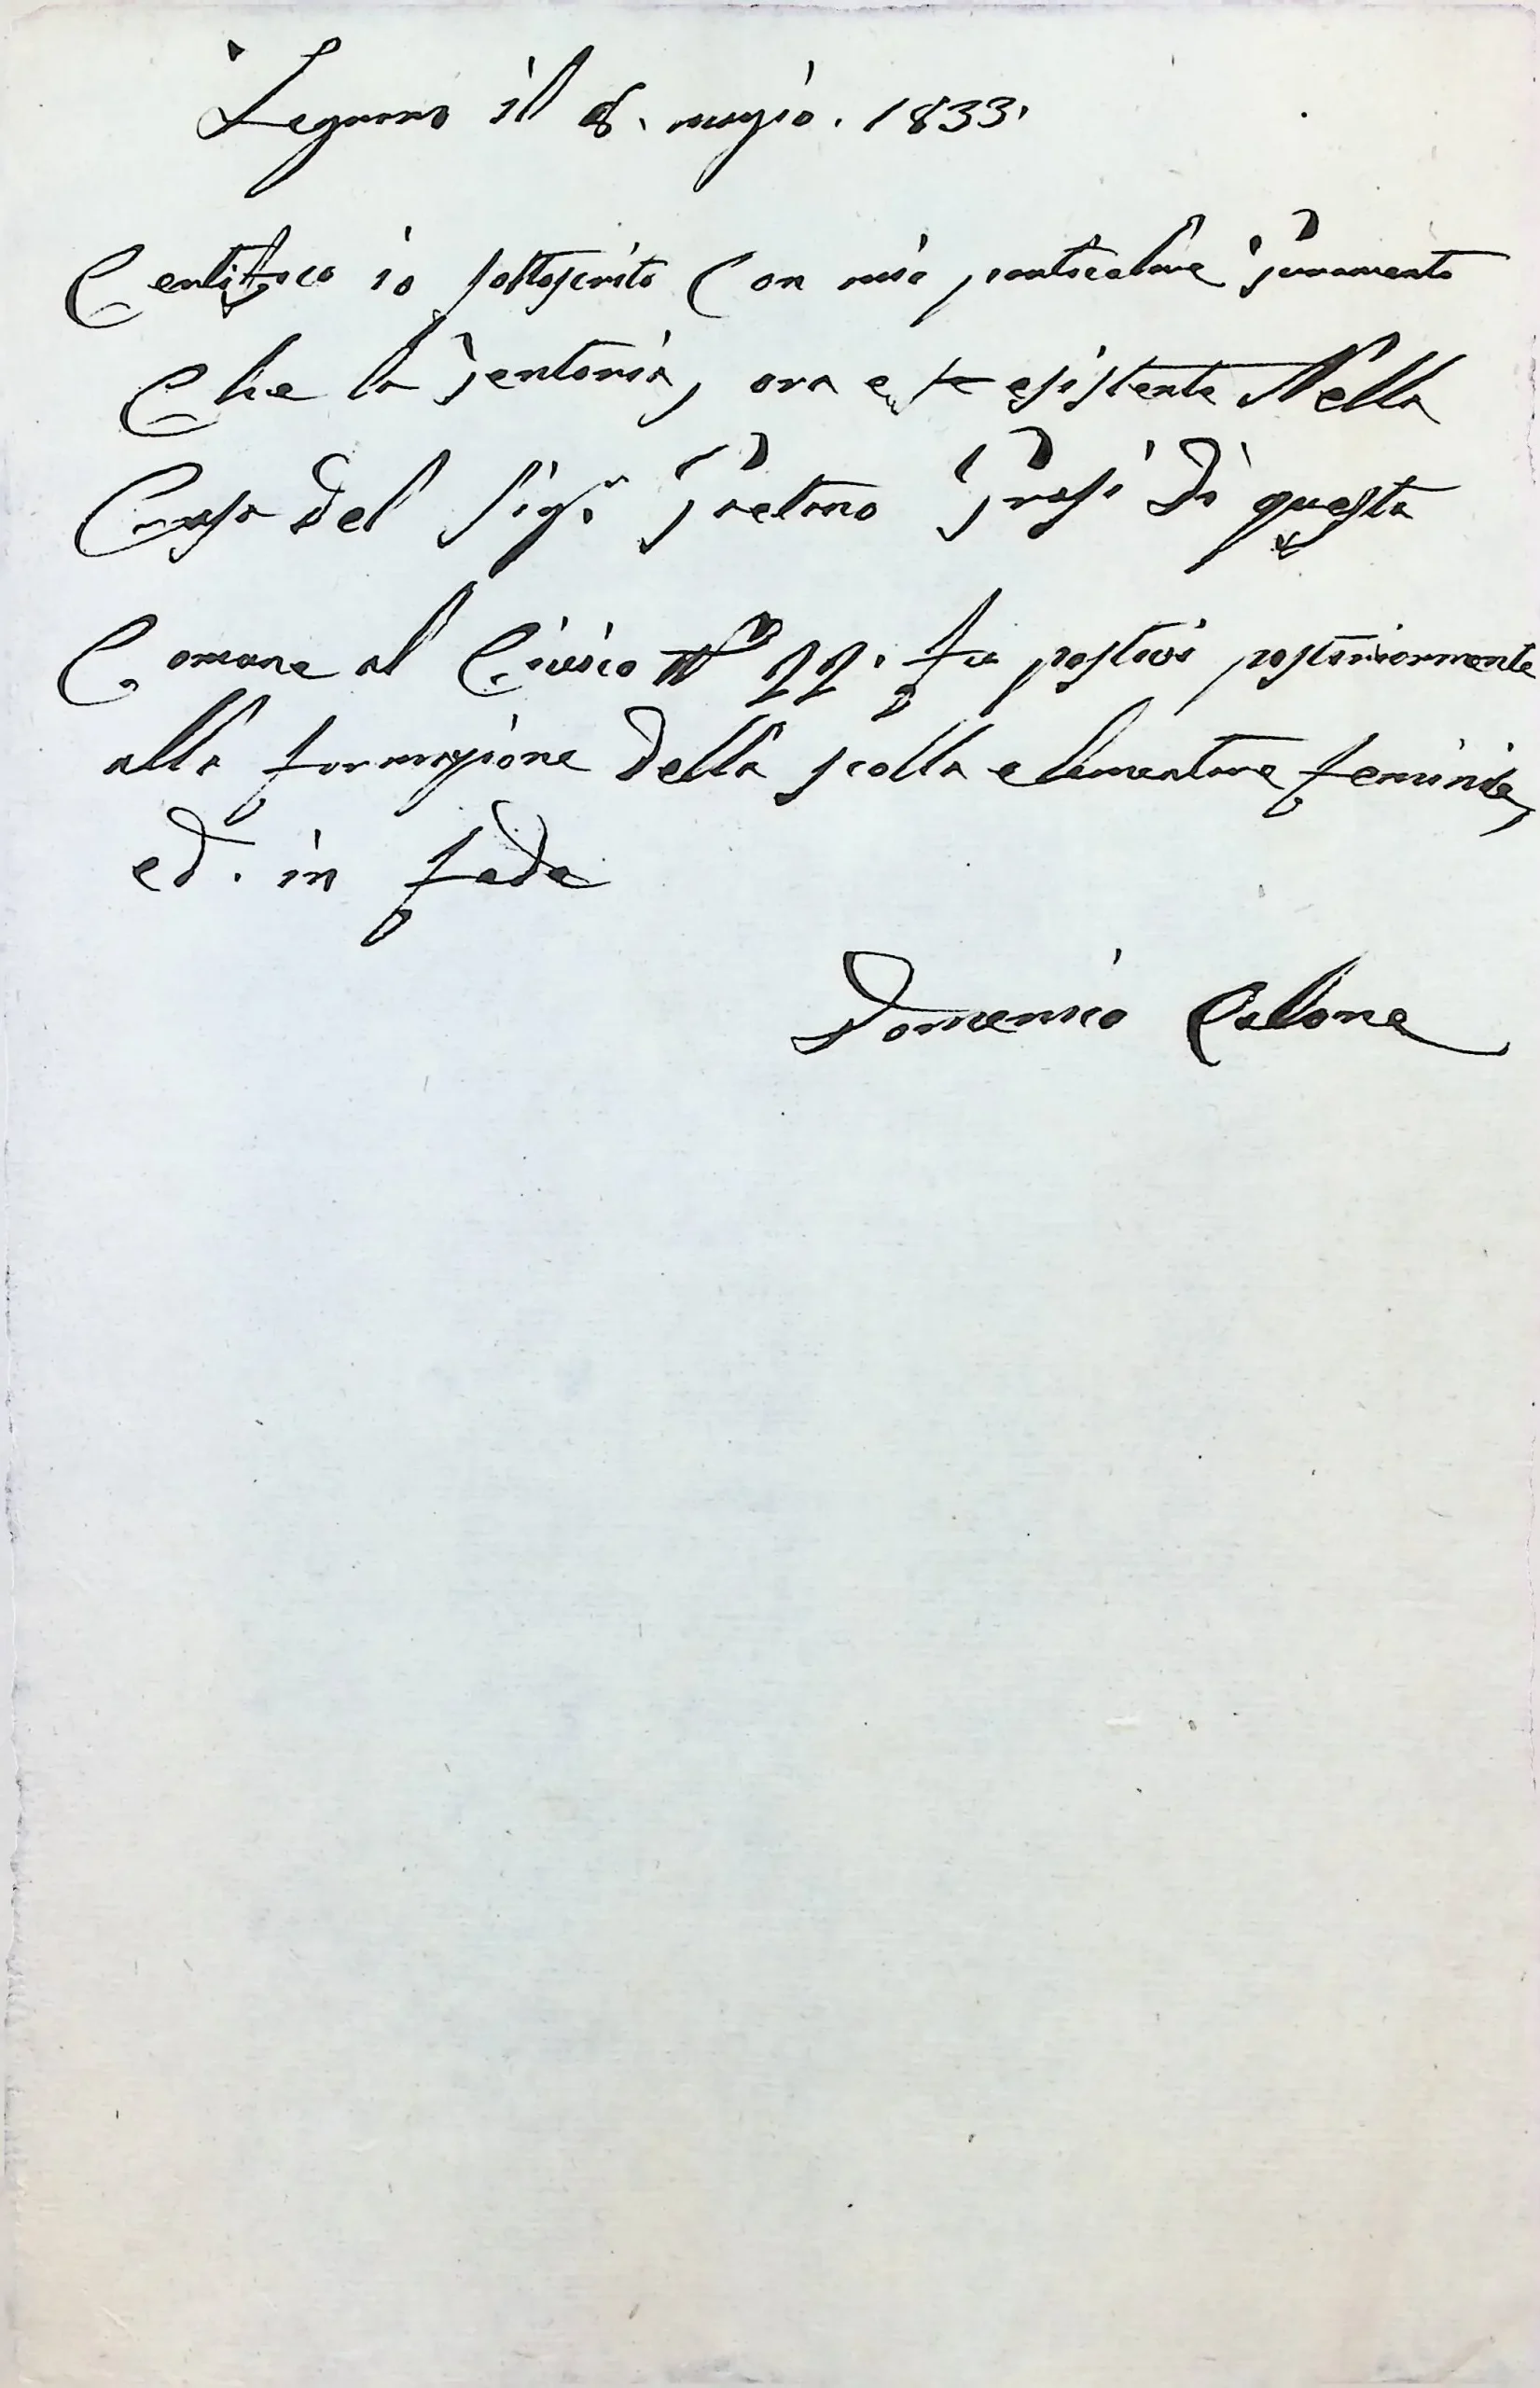 Legnano il 8. magio. 1833.
Certifico io sottoscrito Con mio particolare Juramento
Che la Jentoria, ora esistente Nella
Casa del Sigr Gaetano Grasi Di questa
Comune al Civico N° 22. fu postivi posteriormente
alla formazione della scolla elementare feminile,
ed. in fede
Domenico Calone